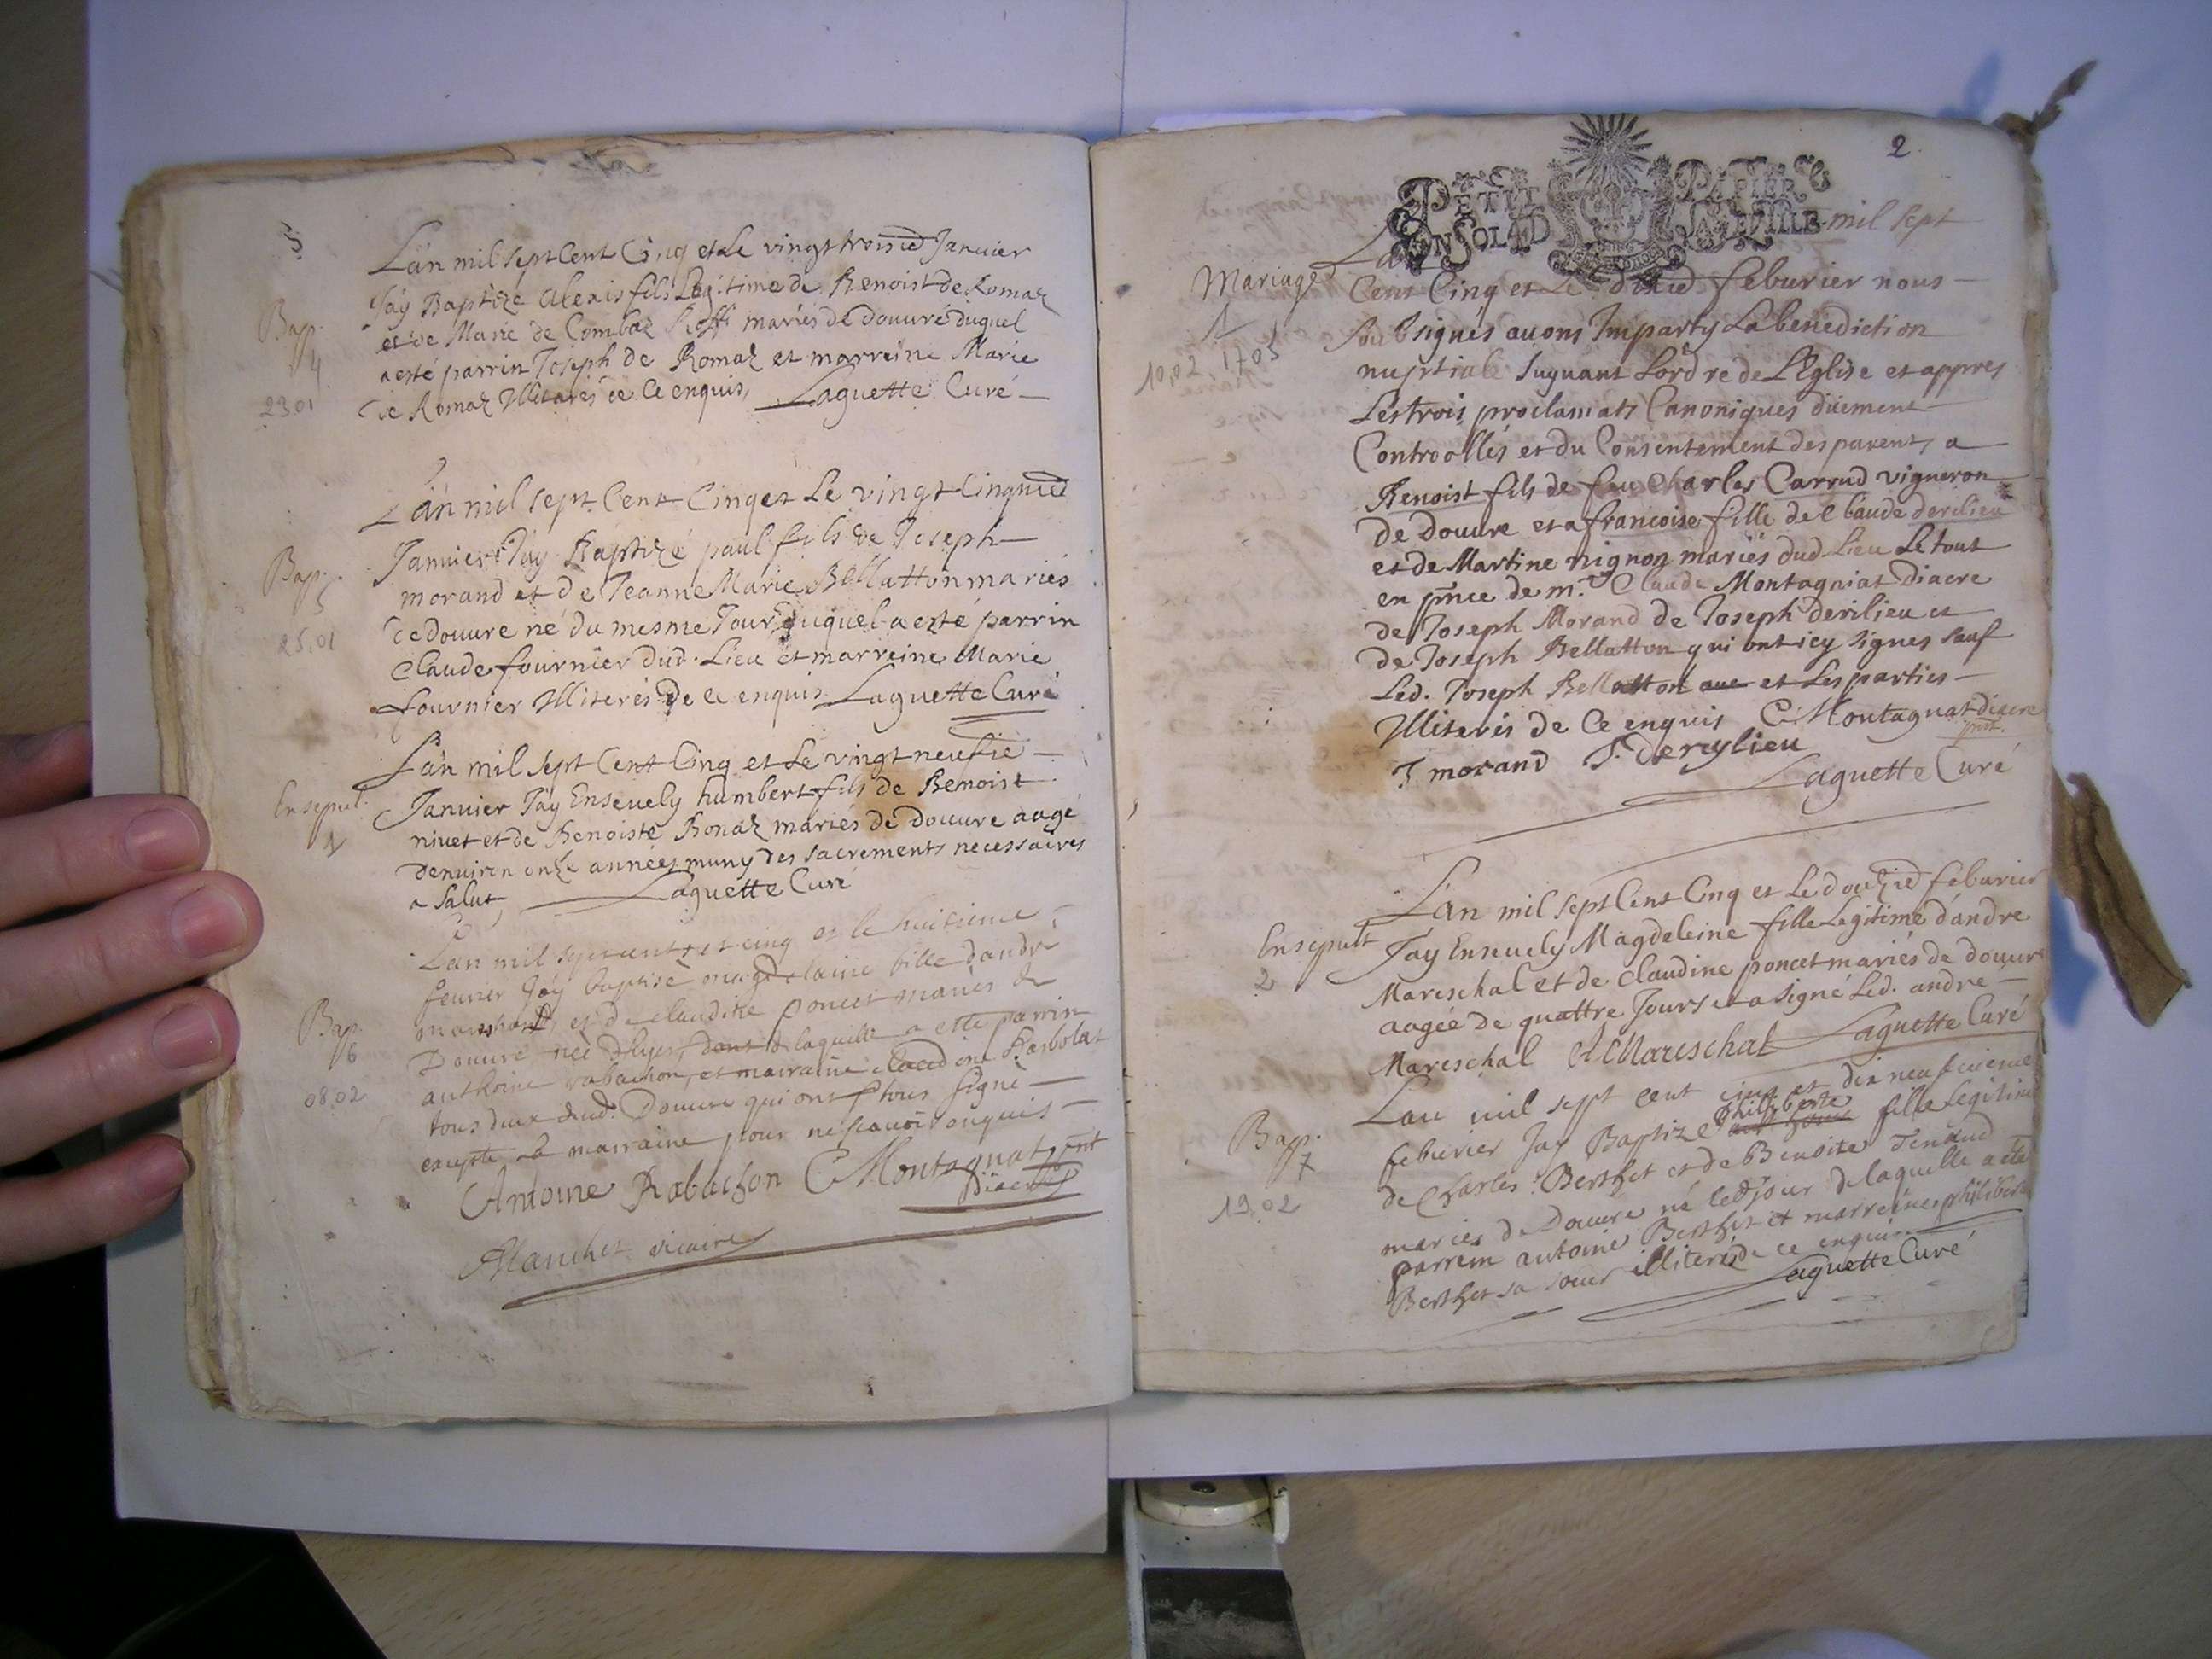 L'an mil sept Cent Cinq et Le vingt troisie Januier
J'ay Baptizé Alexis fils Legitime de Benoist de Romaz
et de Marie de Combaz mariés de douure duquel
a esté parrin Joseph de Romaz et marreine Marie
de Romaz Illiterés de Ce enquis, Laguette Curé
Bap.
4
23.01
L'an mil sept Cent Cinq et Le vingt Cinquie
Januier J'ay Baptizé paul fils de Joseph
morand et de Jeanne Marie Bellatton mariés
de douure né du mesme Jour, duquel a esté parrin
Claude fournier dud. Lieu et marreine Marie
fournier Illiterés de Ce enquis Laguette Curé
Bap.
5
25.01
L'an mil sept Cent Cinq et Le vingt neufie
Januier J'ay Enseuely humbert fils de Benoist
niuet et de Benoiste Bonaz mariés de douure aagé
denuiron onze années muny des sacrements necessaires
a Salut, Laguette Curé
Ensepul.
1
L'an mil sept cent et cinq et le huitieme
feurier J'ay baptisé magdelaine fille d'andré
mareshal et de claudine poncet mariés de
Douure née d'hyer, dont de laquelle a esté parrin
anthoine rabachon, et marraine claudine Barbolat
tous deux dud. Douure qui ont tous signé
excepté la marraine pour ne scauoir enquis
Antoine Rabachon C Montagnat pnt
diacre
Blanchet vicaire
Bap.
6
08.02
2
PETIT PAPIER
CINQ SOL LA FEUILLE
L'an mil sept
Cent Cinq et Le dixie feburier nous
soubsignés auons Imparty La benediction
nuptiale suyuant Lordre de L'Eglise et appres
Les trois proclamats Canoniques düement
Controollés et du Consentement des parents a
Benoist fils de feu Charles Carrud vigneron
de douure et a francoise fille de Claude derilieu
et de Martine nignon mariés dud. Lieu Le tout
en pnce de mr. Claude Montagniat Diacre
de Joseph Morand de Joseph derilieu et
de Joseph Bellatton qui ont icy signés sauf
Led. Joseph Bellatton aue et Les parties
Illiterés de Ce enquis C Montagnat diacre
pnt.
J. morand J. derylieu
Laguette Curé
Mariage
1
10.02.1705
L'an mil sept Cent Cinq et Le douzie feburier
J'ay Enseuely Magdeleine fille Legitime d'andre
Mareschal et de Claudine poncet mariés de douure
aagée de quattre Jours et a signé Led. andre
Mareschal A Mareschal Laguette Curé
Ensepult
2
Lan mil sept cent cinq et dix neufuieme
feburier Jay Baptizé philiberte fille Legitime
de Charles Berthet et de Benoite Tenaud
mariés de Douure né led jour de laquelle a eté
parrein antoine Berthet et marreine philiberte
Berthet sa soeur illiterés de ce enquis
Laguette Curé
Bap.
7
19.02